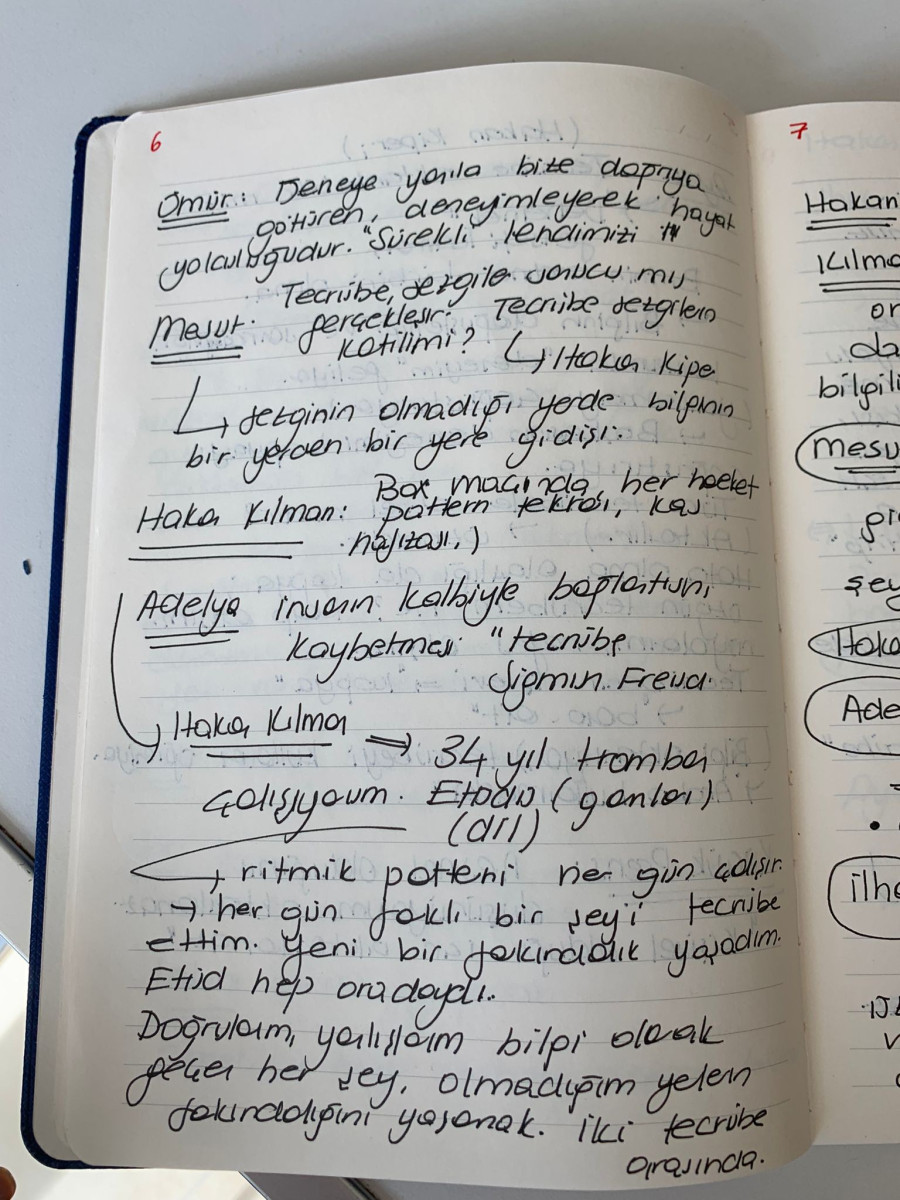 6
Ömür: Deneye yanıla bize doğruya
götüren, deneyimleyerek hayat
yolculuğudur. "Sürekli kendimizi
Tecrübe, sezgiler sonucu mu
Mesut: gerçekleşir. Tecrübe sezgilerin
katılımı? ↳ Hakan Kiper
↳ sezginin olmadığı yerde bilginin
bir yerden bir yere gidişi.
Box maçında her hareket
Hakan Kılman: pattern tekrarı, kas
hafızası.)
Adelya insanın kalbiyle bağlantısını
kaybetmesi "tecrübe
Sigmun Freud.
↳ Hakan Kılman ⇒ 34 yıl trombon
çalışıyorum. Etüdü (gamları)
(dril)
→ ritmik patterni her gün çalışır.
→ her gün farklı bir şeyi tecrübe
ettim. Yeni bir farkındalık yaşadım.
Etüd hep oradaydı..
Doğrularım, yanlışlarım bilgi olarak
geçen her şey, olmadığım yerlerin
farkındalığını yaşamak. İki tecrübe
arasında.
7
Hakan
Kılma
or
da
bilgili
Mesu
şey
Haka
Ade
İlha